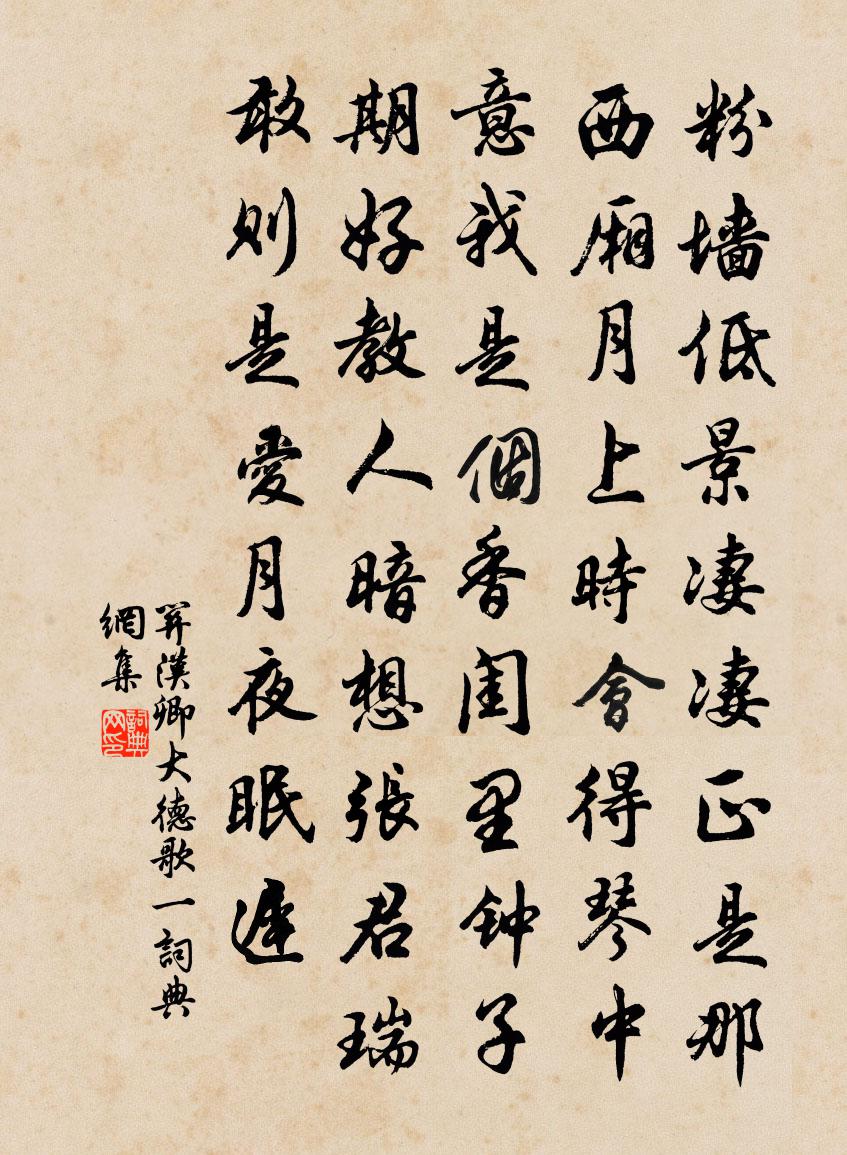 粉墙低景淒淒正是那
西厢月上時會得琴中
意我是個香闺里钟子
期好教人暗想張君瑞
敢则是愛月夜眠遲
关漢卿大德歌一詞典
網集
詞典网印